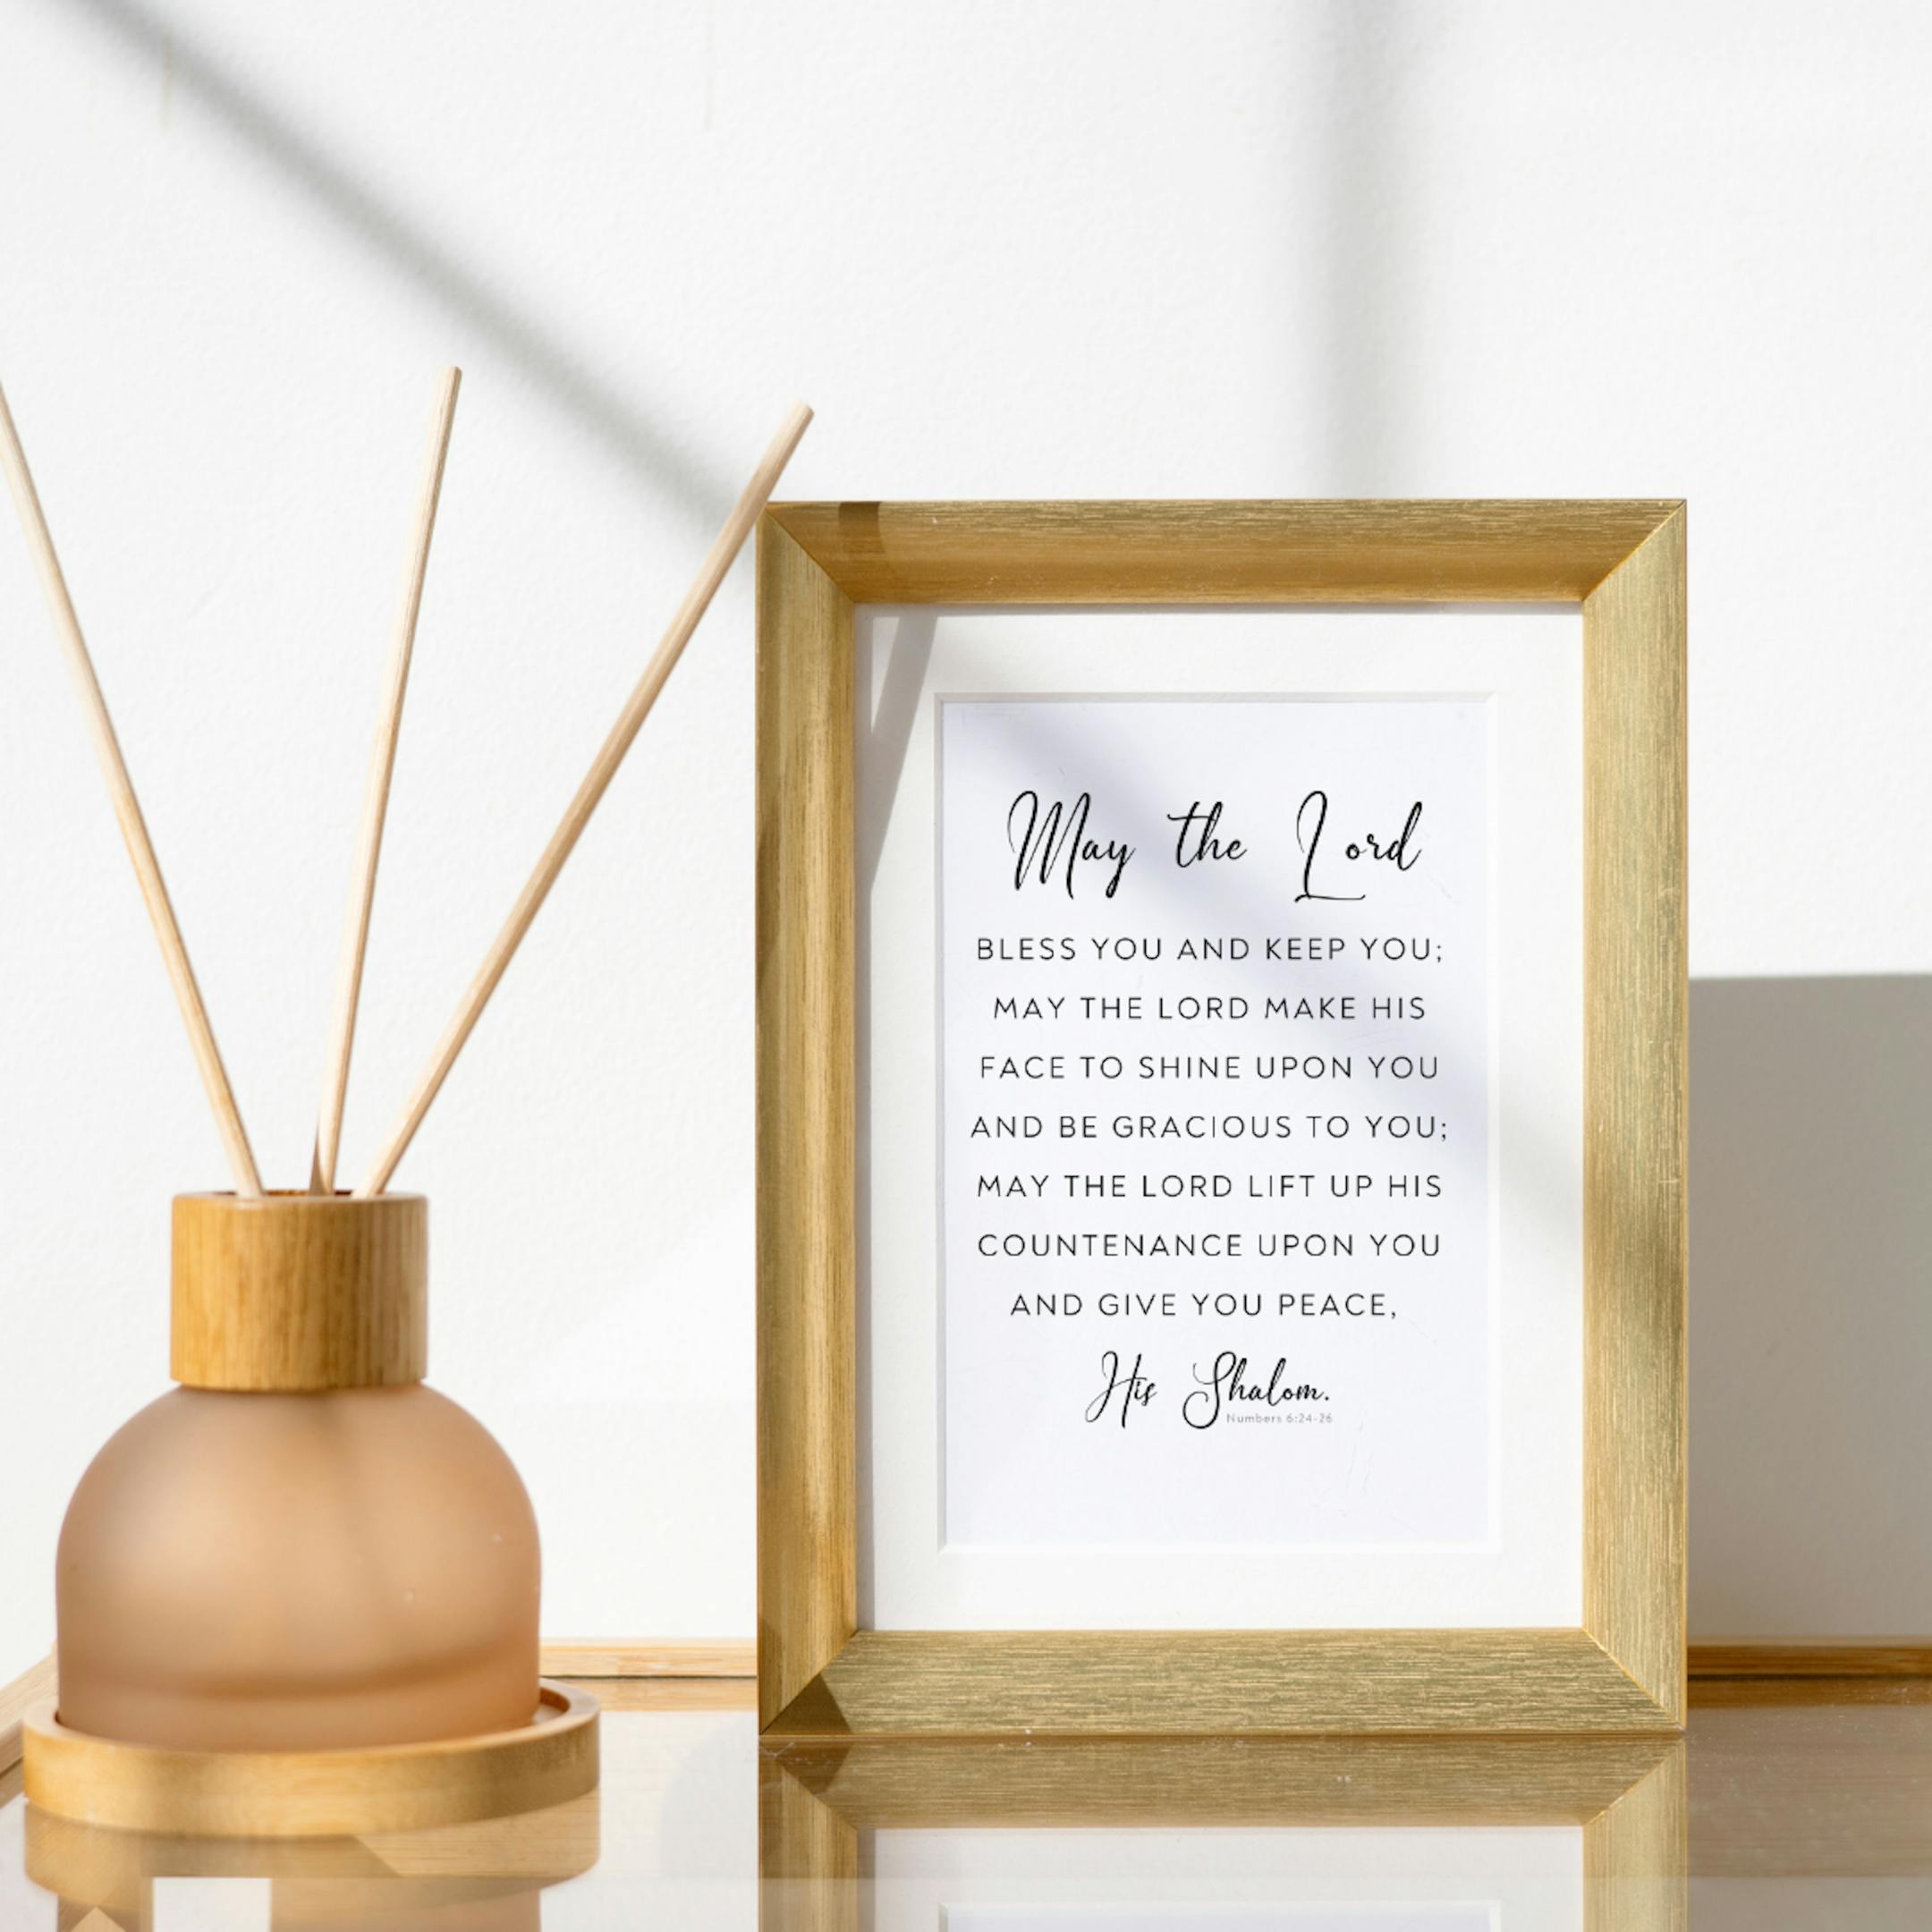 May the Lord
BLESS YOU AND KEEP YOU;
MAY THE LORD MAKE HIS
FACE TO SHINE UPON YOU
AND BE GRACIOUS TO YOU;
MAY THE LORD LIFT UP HIS
COUNTENANCE UPON YOU
AND GIVE YOU PEACE,
His Shalom.
Numbers 6:24-26